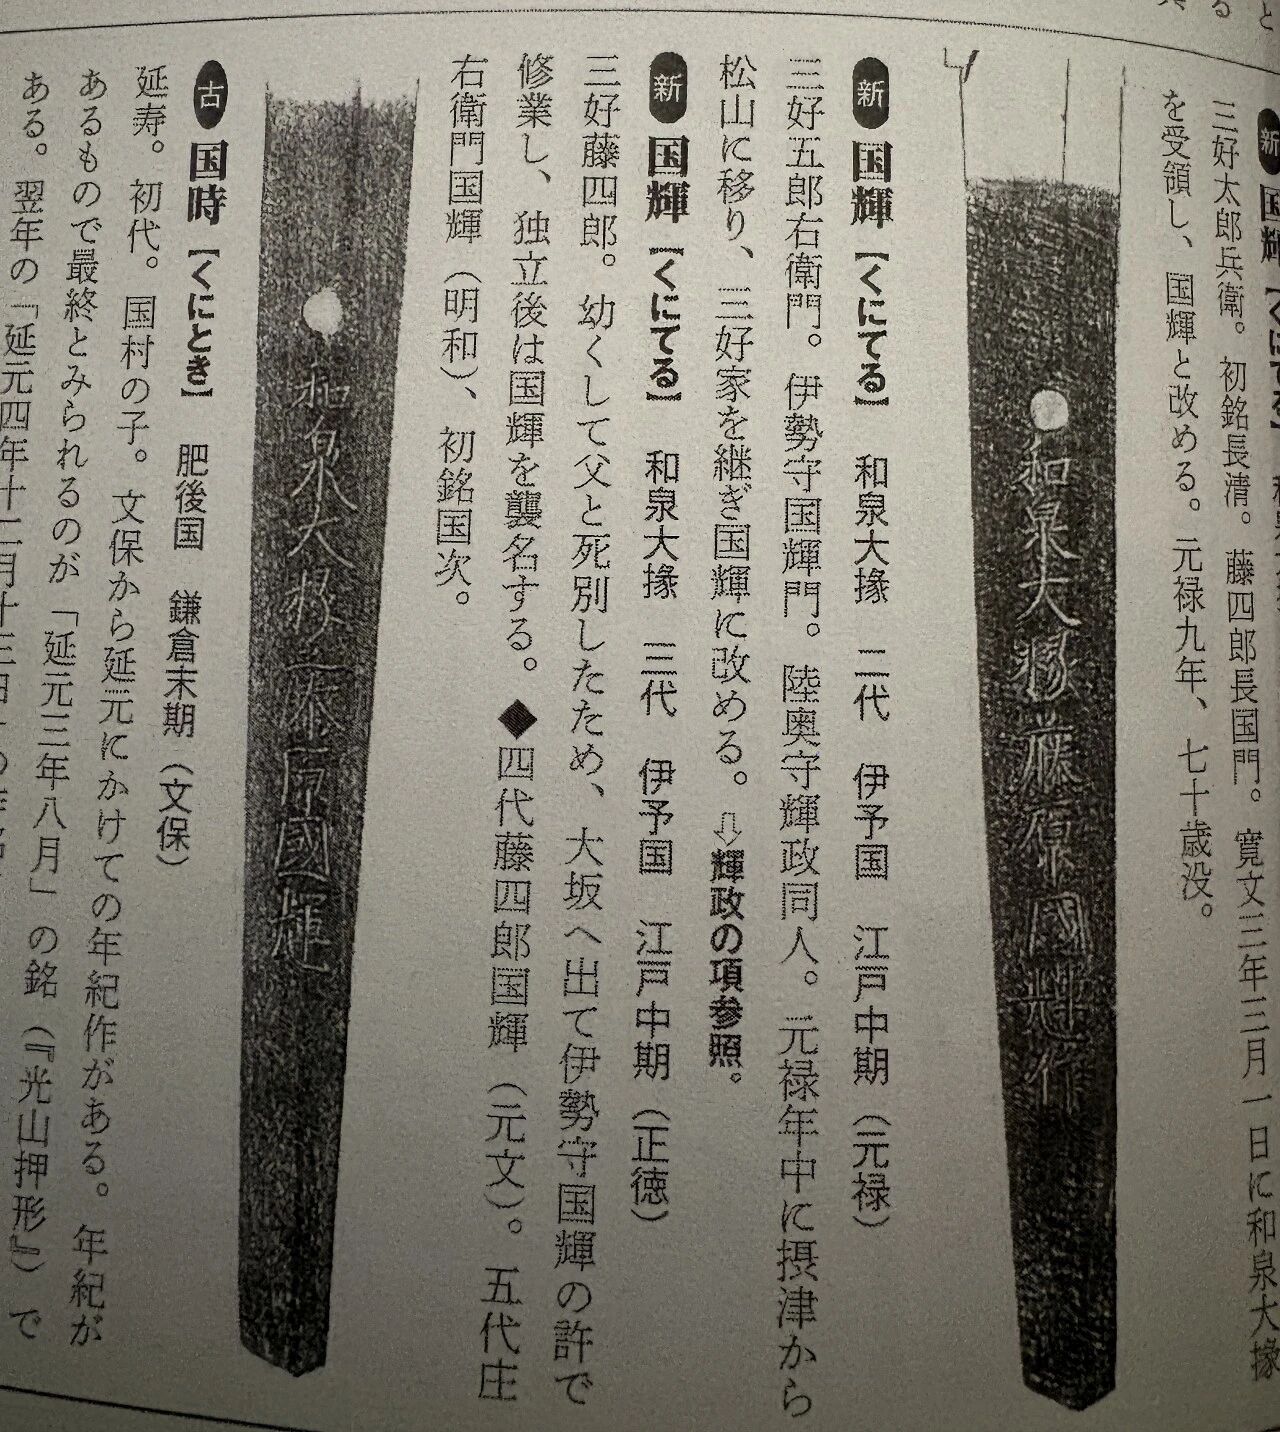 新 国輝
三好太郎兵衛。初銘長清。藤四郎長国門。寛文三年三月一日に和泉大掾
を受領し、国輝と改める。元禄九年、七十歳没。
和泉大掾藤原國輝作
新 国輝【くにてる】 和泉大掾 二代 伊予国 江戸中期（元禄）
三好五郎右衛門。伊勢守国輝門。陸奥守輝政同人。元禄年中に摂津から
松山に移り、三好家を継ぎ国輝に改める。⇨輝政の項参照。
新 国輝【くにてる】 和泉大掾 三代 伊予国 江戸中期（正徳）
三好藤四郎。幼くして父と死別したため、大坂へ出て伊勢守国輝の許で
修業し、独立後は国輝を襲名する。◆四代藤四郎国輝（元文）。五代庄
右衛門国輝（明和）、初銘国次。
和泉大掾藤原國輝
古 国時【くにとき】 肥後国 鎌倉末期（文保）
延寿。初代。国村の子。文保から延元にかけての年紀作がある。年紀が
あるもので最終とみられるのが「延元三年八月」の銘（『光山押形』）で
ある。翌年の「延元四年十二月十三日